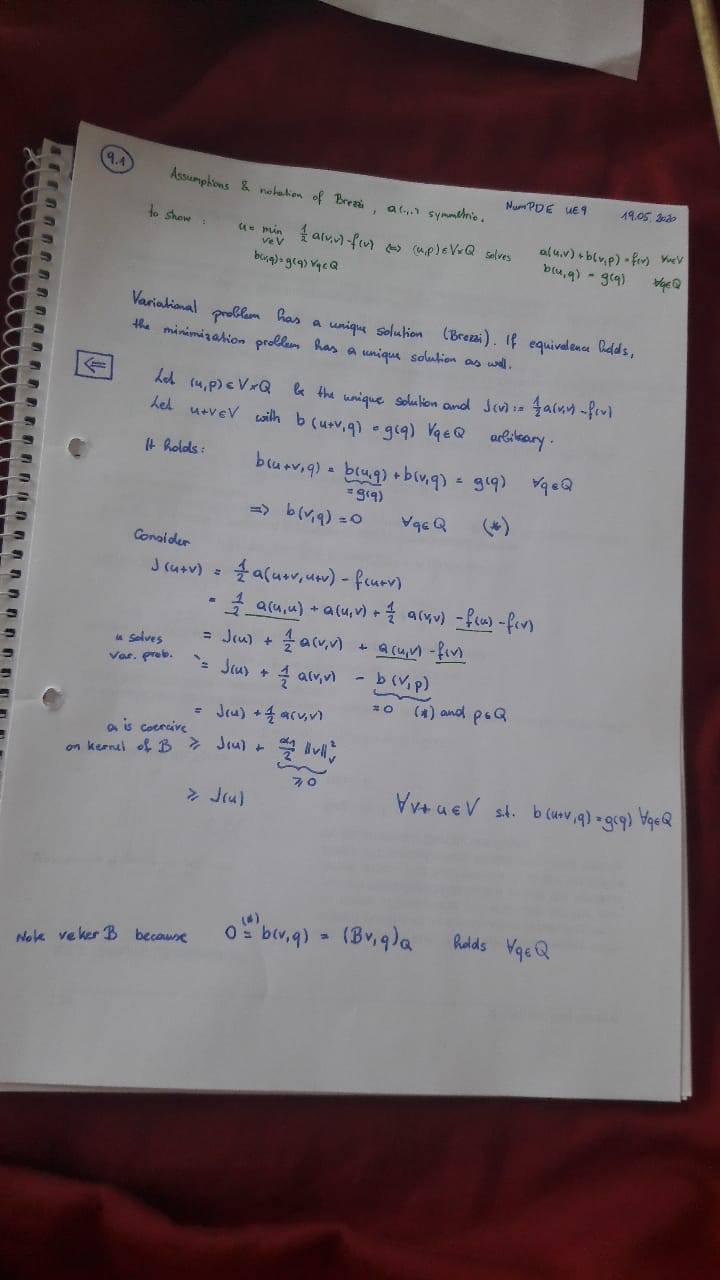 9.1
Assumptions & notation of Brezzi, a(.,.) symmetric. NumPDE UE9 19.05.2020
to show: u = min 1/2 a(v,v) - f(v) <=> (u,p) ∈ V×Q solves a(u,v) + b(v,p) = f(v) ∀v∈V
v∈V
b(v,q)=g(q) ∀q∈Q b(u,q) = g(q) ∀q∈Q
Variational problem has a unique solution (Brezzi). If equivalence holds,
the minimization problem has a unique solution as well.
⇐ Let (u,p) ∈ V×Q be the unique solution and J(v) := 1/2 a(v,v) - f(v)
Let u+v∈V with b(u+v,q) = g(q) ∀q∈Q arbitrary.
It holds: b(u+v,q) = b(u,q) + b(v,q) = g(q) ∀q∈Q
= g(q)
=> b(v,q) = 0 ∀q∈Q (*)
Consider
J(u+v) = 1/2 a(u+v,u+v) - f(u+v)
= 1/2 a(u,u) + a(u,v) + 1/2 a(v,v) - f(u) - f(v)
= J(u) + 1/2 a(v,v) + a(u,v) - f(v)
u solves
var. prob. = J(u) + 1/2 a(v,v) - b(v,p)
= J(u) + 1/2 a(v,v) =0 (*) and p∈Q
a is coercive
on kernel of B ≥ J(u) + α1/2 ||v||²_V
≥0
≥ J(u) ∀v+u∈V s.t. b(u+v,q) = g(q) ∀q∈Q
(*)
Note v∈ker B because 0 = b(v,q) = (Bv,q)_Q holds ∀q∈Q